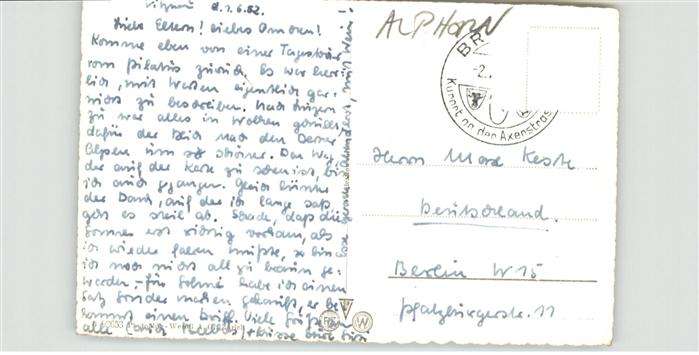 d. 1.6.62.
Liebe Eltern! Liebes Omchen!
Komme eben von einer Tagestour
vom Pilatus zurück. Es war herr-
lich, mit Worten eigentlich gar
nicht zu beschreiben. Nach Süden
zu war alles in Wolken gehüllt,
dafür der Blick nach den Berner
Alpen um so schöner. Den Weg,
der auf der Karte zu sehen ist, bin
ich auch gegangen. Gleich hinter
der Bank, auf der ich lange saß,
geht es steil ab. Schade, daß die
Sonne erst richtig vorkam, als
ich wieder fahren mußte, so bin
ich noch nicht all zu braun ge-
worden. - Für habe ich einen
Satz Sonder marken gekauft, er be-
kommt einen Brief. Viele Grüße an
alle
ALPHORN
BR
-2.
Kurort an der Axenstras
Herrn Max
Deutschland.
Berlin W 15
Pfalzburgerstr. 11